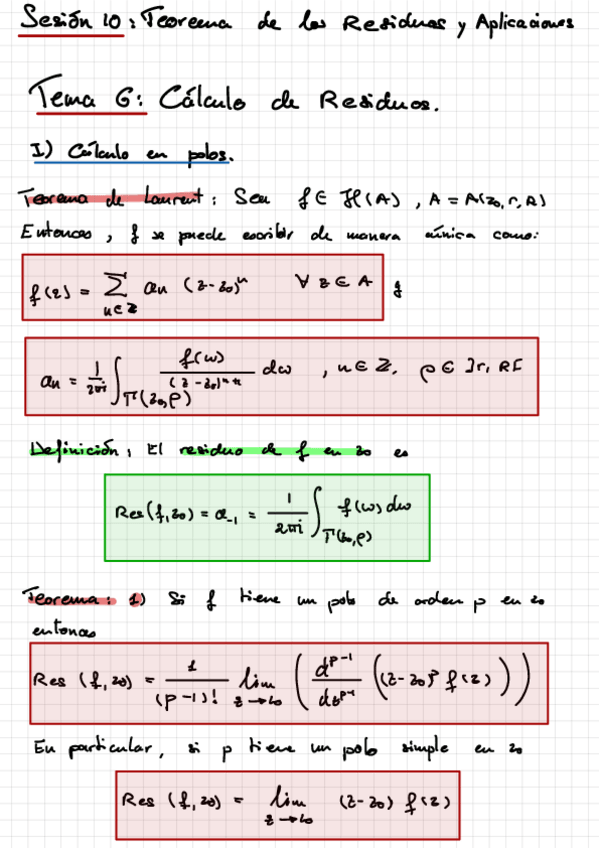 Sesión 10: Teorema de los Residuos y Aplicaciones
Tema 6: Cálculo de Residuos.
I) Cálculo en polos.
Teorema de Laurent: Sea f ∈ H(A), A = A(z₀, r, R)
Entonces, f se puede escribir de manera única como:
f(z) = ∑_{n∈ℤ} aₙ (z-z₀)ⁿ ∀ z ∈ A y
aₙ = 1/2πi ∫_{Γ(z₀,ρ)} f(w)/(z-z₀)ⁿ⁺¹ dw , n ∈ ℤ, ρ ∈ ]r, R[
Definición: El residuo de f en z₀ es
Res(f, z₀) = a₋₁ = 1/2πi ∫_{Γ(z₀,ρ)} f(w) dw
Teorema: 1) Si f tiene un polo de orden p en z₀
entonces
Res (f, z₀) = 1/(p-1)! lim_{z→z₀} (d^{p-1}/dz^{p-1} ((z-z₀)^p f(z)))
En particular, si p tiene un polo simple en z₀
Res (f, z₀) = lim_{z→z₀} (z-z₀) f(z)